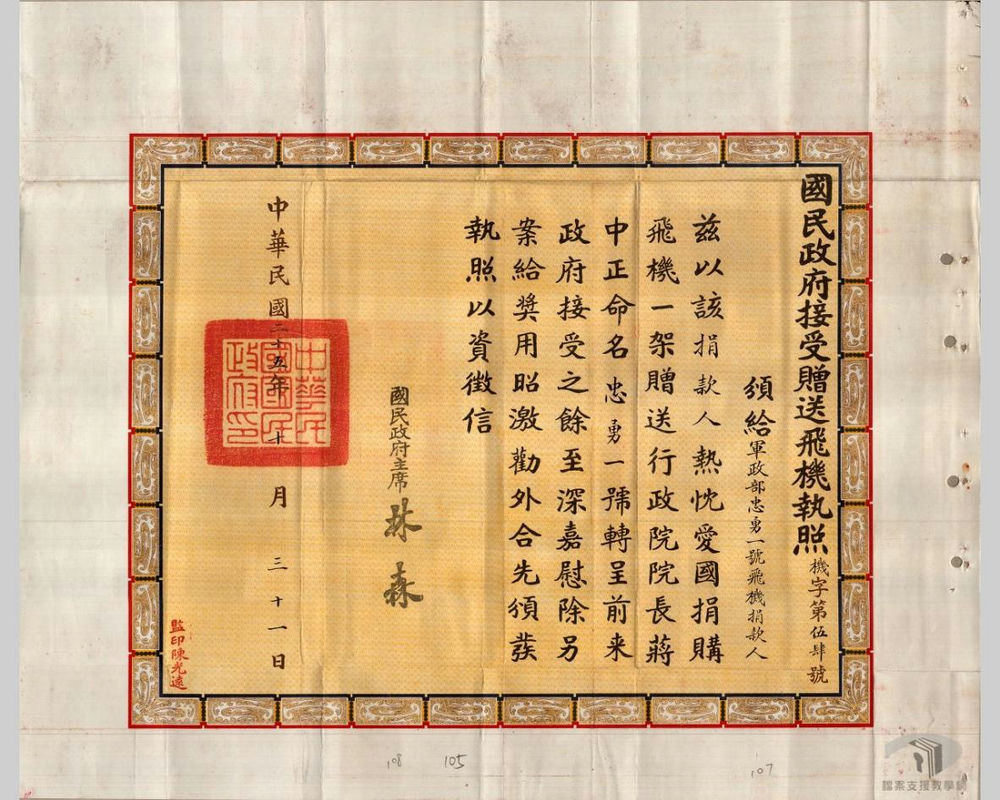 國民政府接受贈送飛機執照
機字第伍肆號
頒給軍政部忠勇一號飛機捐款人
茲以該捐款人熱忱愛國捐購
飛機一架贈送行政院院長蔣
中正命名忠勇一號轉呈前来
政府接受之餘至深嘉慰除另
案給獎用昭激勸外合先頒發
執照以資徵信
國民政府主席林森
中華民國二十五年十月三十一日
中華民
國國民
政府印
監印陳光遠
108
105
107
檔案支援教學網